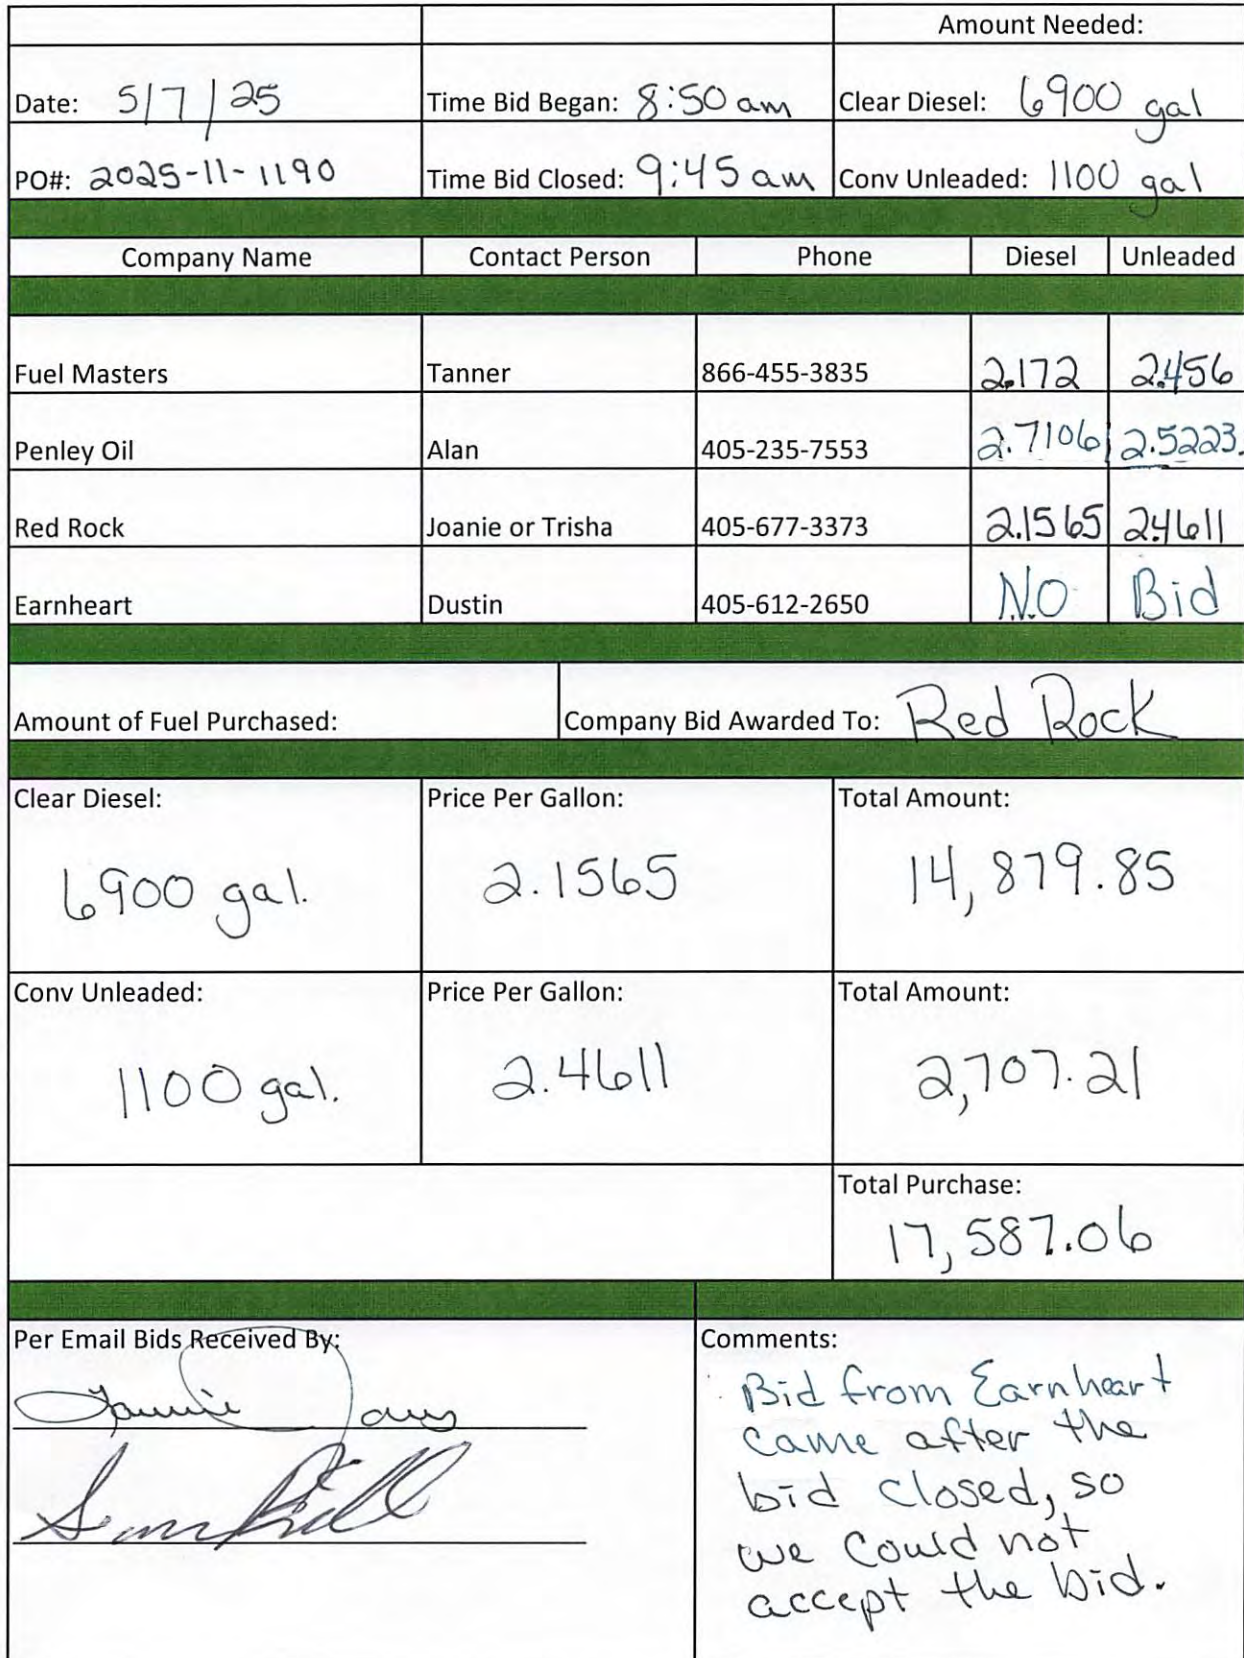 Amount Needed:
Date: 5/7/25 Time Bid Began: 8:50 am Clear Diesel: 6900 gal
PO#: 2025-11-1190 Time Bid Closed: 9:45 am Conv Unleaded: 1100 gal
Company Name Contact Person Phone Diesel Unleaded
Fuel Masters Tanner 866-455-3835 2.172 2.456
Penley Oil Alan 405-235-7553 2.7106 2.5223
Red Rock Joanie or Trisha 405-677-3373 2.1565 2.4611
Earnheart Dustin 405-612-2650 NO Bid
Amount of Fuel Purchased: Company Bid Awarded To: Red Rock
Clear Diesel: Price Per Gallon: Total Amount:
6900 gal. 2.1565 14,879.85
Conv Unleaded: Price Per Gallon: Total Amount:
1100 gal. 2.4611 2,707.21
Total Purchase:
17,587.06
Per Email Bids Received By: Comments:
Bid from Earnheart
came after the
bid closed, so
we could not
accept the bid.